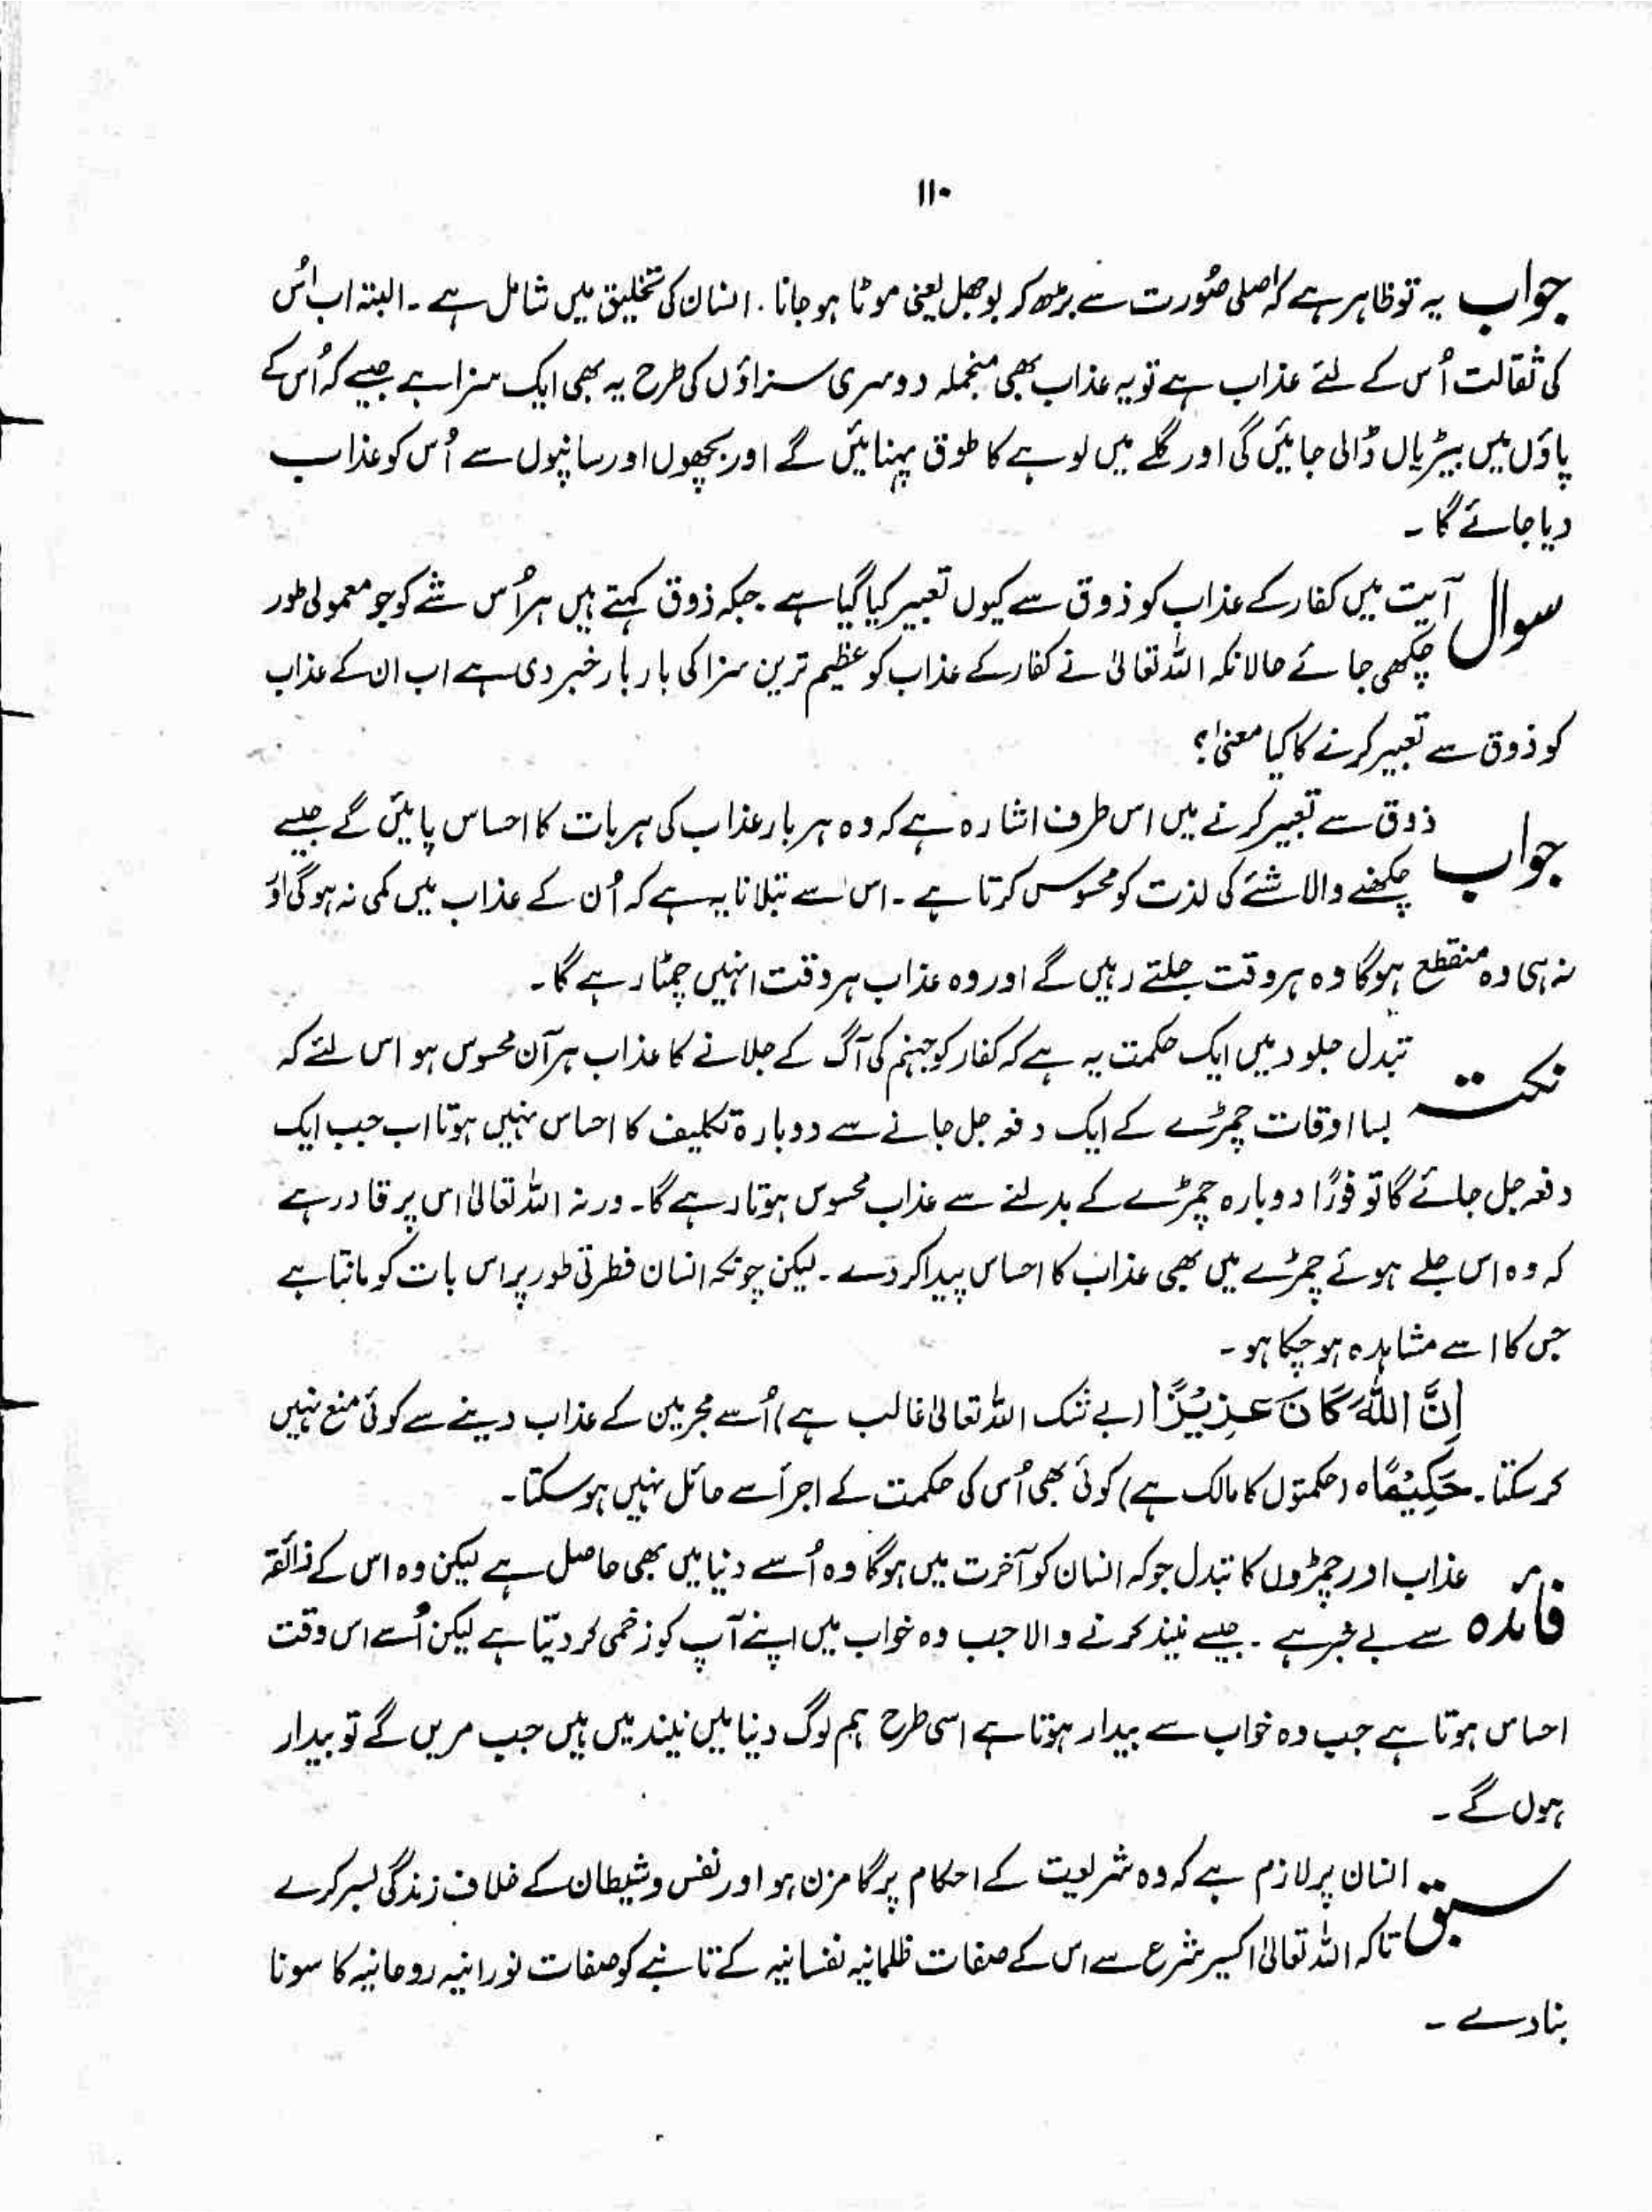 ۱۱۰
جواب یہ تو ظاہر ہے کہ اصلی صُورت سے بڑھ کر بوجھل یعنی موٹا ہو جانا . انسان کی تخلیق میں شامل ہے ۔ البتہ اب اُس
کی ثقالت اُس کے لئے عذاب ہے تو یہ عذاب بھی منجملہ دوسری سزاؤں کی طرح یہ بھی ایک سزا ہے جیسے کہ اُس کے
پاؤں میں بیڑیاں ڈالی جائیں گی اور گلے میں لوہے کا طوق پہنائیں گے اور بچھوں اور سانپوں سے اُس کو عذاب
دیا جائے گا ۔
سوال آیت میں کفار کے عذاب کو ذوق سے کیوں تعبیر کیا گیا ہے . جبکہ ذوق کہتے ہیں ہر اُس شے کو جو معمولی طور
چکھی جائے حالانکہ اللہ تعالیٰ نے کفار کے عذاب کو عظیم ترین سزا کی بار بار خبر دی ہے اب ان کے عذاب
کو ذوق سے تعبیر کرنے کا کیا معنیٰ؟
جواب ذوق سے تعبیر کرنے میں اس طرف اشارہ ہے کہ وہ ہر بار عذاب کی ہر بات کا احساس پائیں گے جیسے
چکھنے والا شئے کی لذت کو محسوس کرتا ہے ۔ اس سے بتلانا یہ ہے کہ اُن کے عذاب میں کمی نہ ہوگی اوُ
نہ ہی وہ منقطع ہوگا وہ ہر وقت جلتے رہیں گے اور وہ عذاب ہر وقت انہیں چمٹا رہے گا ۔
نکتہ تبدل جلود میں ایک حکمت یہ ہے کہ کفار کو جہنم کی آگ کے جلانے کا عذاب ہر آن محسوس ہو اس لئے کہ
بسا اوقات چمڑے کے ایک دفعہ جل جانے سے دوبارہ تکلیف کا احساس نہیں ہوتا اب جب ایک
دفعہ جل جائے گا تو فورًا دوبارہ چمڑے کے بدلنے سے عذاب محسوس ہوتا رہے گا ۔ ورنہ اللہ تعالیٰ اس پر قادر ہے
کہ وہ اس جلے ہوئے چمڑے میں بھی عذاب کا احساس پیدا کر دے ۔ لیکن چونکہ انسان فطرتی طور پر اس بات کو مانتا ہے
جس کا اسے مشاہدہ ہو چکا ہو ۔
اِنَّ اللّٰہَ کَانَ عَزِیْزًا (بے شک اللہ تعالیٰ غالب ہے) اُسے مجرمین کے عذاب دینے سے کوئی منع نہیں
کر سکتا ۔ حَکِیْمًا ہ (حکمتوں کا مالک ہے) کوئی بھی اُس کی حکمت کے اجرأ سے حائل نہیں ہو سکتا ۔
فائدہ عذاب اور چمڑوں کا تبدل جو کہ انسان کو آخرت میں ہوگا وہ اُسے دنیا میں بھی حاصل ہے لیکن وہ اس کے ذائقہ
سے بے خبر ہے ۔ جیسے نیند کرنے والا جب وہ خواب میں اپنے آپ کو زخمی کر دیتا ہے لیکن اُسے اس وقت
احساس ہوتا ہے جب وہ خواب سے بیدار ہوتا ہے اسی طرح ہم لوگ دنیا میں نیند میں ہیں جب مریں گے تو بیدار
ہوں گے ۔
سبق انسان پر لازم ہے کہ وہ شریعت کے احکام پر گامزن ہو اور نفس و شیطان کے خلاف زندگی بسر کرے
تاکہ اللہ تعالیٰ اکسیر شرع سے اس کے صفات ظلمانیہ نفسانیہ کے تانبے کو صفات نورانیہ روحانیہ کا سونا
بنا دے ۔